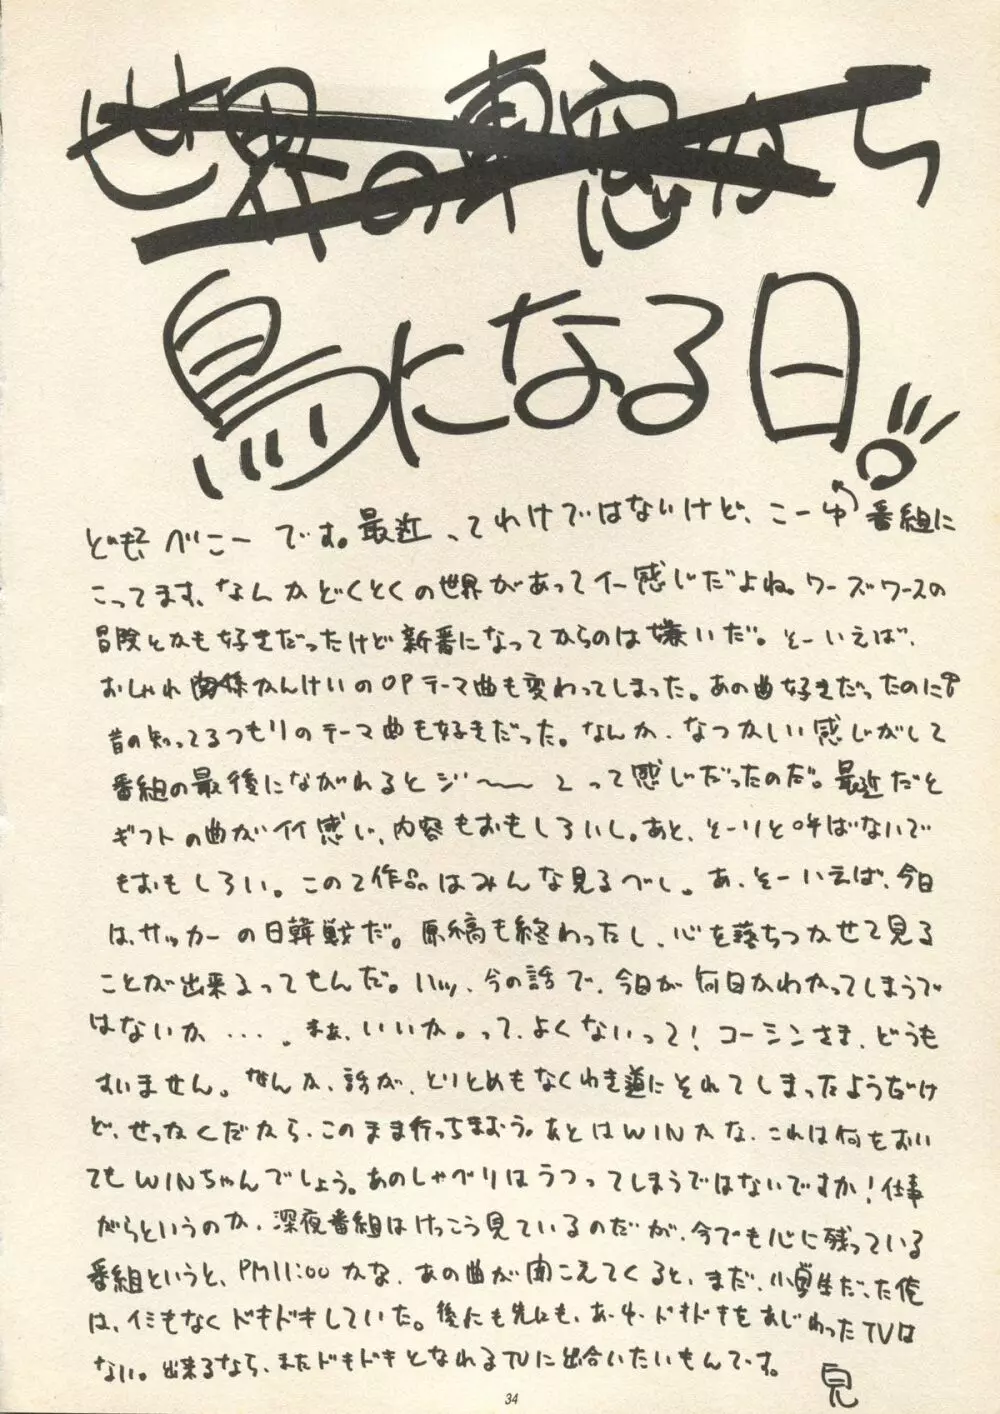 世界の車窓から
鳥になる日。
ども、べにーです。最近ってわけではないけど、こーゆ番組に
こってます、なんかどくとくの世界があってイー感じだよね。ワーズワースの
冒険とかも好きだったけど新番になってからのは嫌いだ。そーいえば、
おしゃれ関係かんけいのOPテーマ曲も変わってしまった。あの曲好きだったのに
昔の知ってるつもりのテーマ曲も好きだった。なんか、なつかしい感じがして
番組の最後にながれるとジ〜〜んって感じだったのだ。最近だと
ギフトの曲がイイ感じ、内容もおもしろいし。あと、そーリと呼ばないで
もおもしろい。この2作品はみんな見るべし。あ、そーいえば、今日
は、サッカーの日韓戦だ。原稿も終わったし、心を落ちつかせて見る
ことが出来るってもんだ。ハッ、今の話で、今日が何日かわかってしまうで
はないか・・・。まぁ、いいか。って、よくないって！コーシンさま、どうも
すいません。なんか、話が、とりとめもなくわき道にそれてしまったようだけ
ど、せっかくだから、このまま行っちまおう。あとはWINかな、これは何をおい
てもWINちゃんでしょう。あのしゃべりはうつってしまうではないですか！仕事
がらというのか、深夜番組はけっこう見ているのだが、今でも心に残っている
番組というと、PM11:00かな、あの曲が聞こえてくると、まだ、小学生だった俺
は、イミもなくドキドキしていた。後にも先にも、あ、ゆ、ドキドキをあじわったTVは
ない。出来るなら、またドキドキとなれるTVに出合いたいもんです。
34